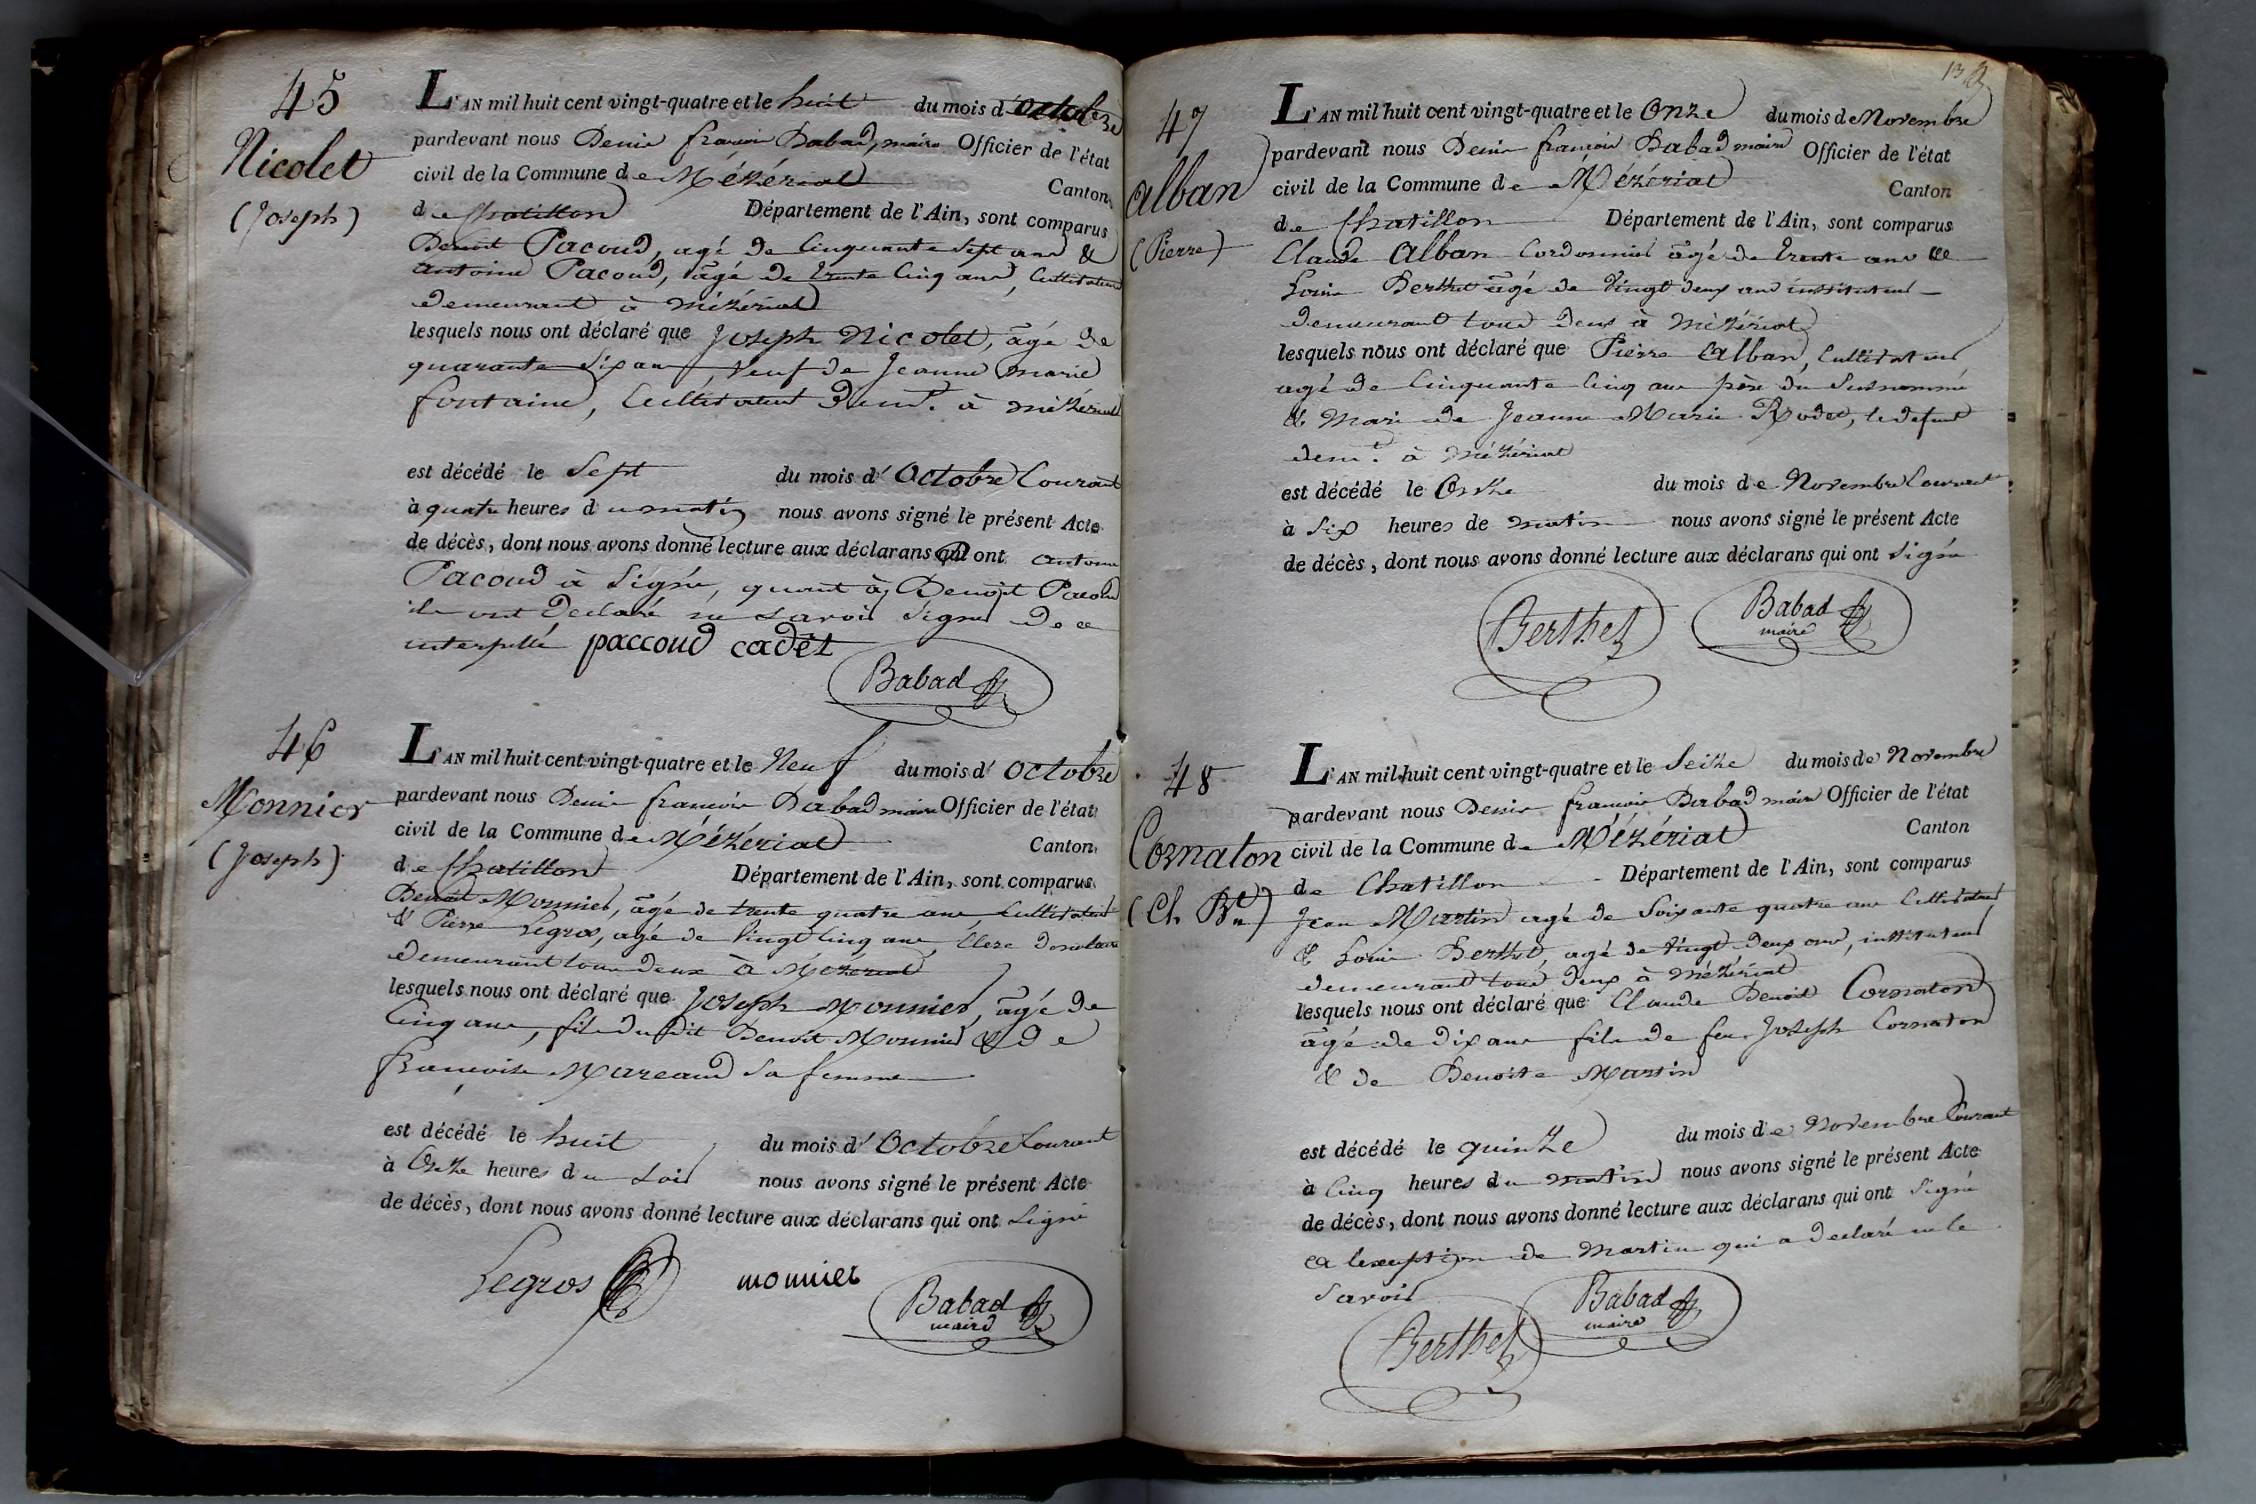 45
Nicolet
(Joseph)
L'AN mil huit cent vingt-quatre et le huit du mois d'octobre
pardevant nous Denis françois Babad, maire Officier de l'état
civil de la Commune de Mézériat Canton
de Chatillon Département de l'Ain, sont comparus
Benoit Pacoud, agé de Cinquante Sept ans &
antoine Pacoud, âgé de trente Cinq ans, Cultivateurs
demeurant à mézériat
lesquels nous ont déclaré que Joseph Nicolet, âgé de
quarante Six ans veuf de Jeanne marie
fontaine, Cultivateur demt. à mézériat
est décédé le Sept du mois d'Octobre Courant
à quatre heures du matin nous avons signé le présent Acte
de décès, dont nous avons donné lecture aux déclarans qui ont antoine
Pacoud à Signé, quant à Benoit Pacoud
ils ont Declaré ne Savoir Signer de ce
interpellé paccoud cadet
Babad
46
Monnier
(Joseph)
L'AN mil huit cent vingt-quatre et le Neuf du mois d'Octobre
pardevant nous Denis françois Babad maire Officier de l'état
civil de la Commune de Mézériat Canton
de Chatillon Département de l'Ain, sont comparus
Benoit Monnier, âgé de trente quatre ans Cultivateur
& Pierre Legros, agé de Vingt Cinq ans, Clerc
demeurant tous deux à Mézériat
lesquels nous ont déclaré que Joseph Monnier, âgé de
Cinq ans, fils du dit Benoit Monnier & de
françoise Mareaud Sa femme
est décédé le huit du mois d'Octobre Courant
à Onze heures du Soir nous avons signé le présent Acte
de décès, dont nous avons donné lecture aux déclarans qui ont Signé
Legros monnier Babad
maire
47
alban
(Pierre)
L'AN mil huit cent vingt-quatre et le Onze du mois de Novembre
pardevant nous Denis françois Babad maire Officier de l'état
civil de la Commune de Mézériat Canton
de Chatillon Département de l'Ain, sont comparus
Claude Alban Cordonnier âgé de trente ans &
Louis Berthet âgé de Vingt deux ans instituteur
demeurant tous deux à Mézériat
lesquels nous ont déclaré que Pierre Alban, Cultivateur
agé de Cinquante Cinq ans père du Susnommé
& Mari de Jeanne Marie Rodet, le defunt
demt. à Mézériat
est décédé le Onze du mois de Novembre Courant
à Six heures de matin nous avons signé le présent Acte
de décès, dont nous avons donné lecture aux déclarans qui ont Signé
Berthet Babad
maire
48
Cornaton
(Cl. Bt.)
L'AN mil huit cent vingt-quatre et le Seize du mois de Novembre
pardevant nous Denis françois Babad maire Officier de l'état
civil de la Commune de Mézériat Canton
de Chatillon Département de l'Ain, sont comparus
Jean Martin agé de Soixante quatre ans Cultivateur
& Louis Berthet, agé de vingt deux ans, instituteur
demeurant tous deux à Mézériat
lesquels nous ont déclaré que Claude Benoit Cornaton
âgé de dix ans fils de feu Joseph Cornaton
& de Benoite Martin
est décédé le quinze du mois de Novembre Courant
à Cinq heures du matin nous avons signé le présent Acte
de décès, dont nous avons donné lecture aux déclarans qui ont Signé
a lexception de Martin qui a declaré ne le
Savoir
Berthet Babad
maire